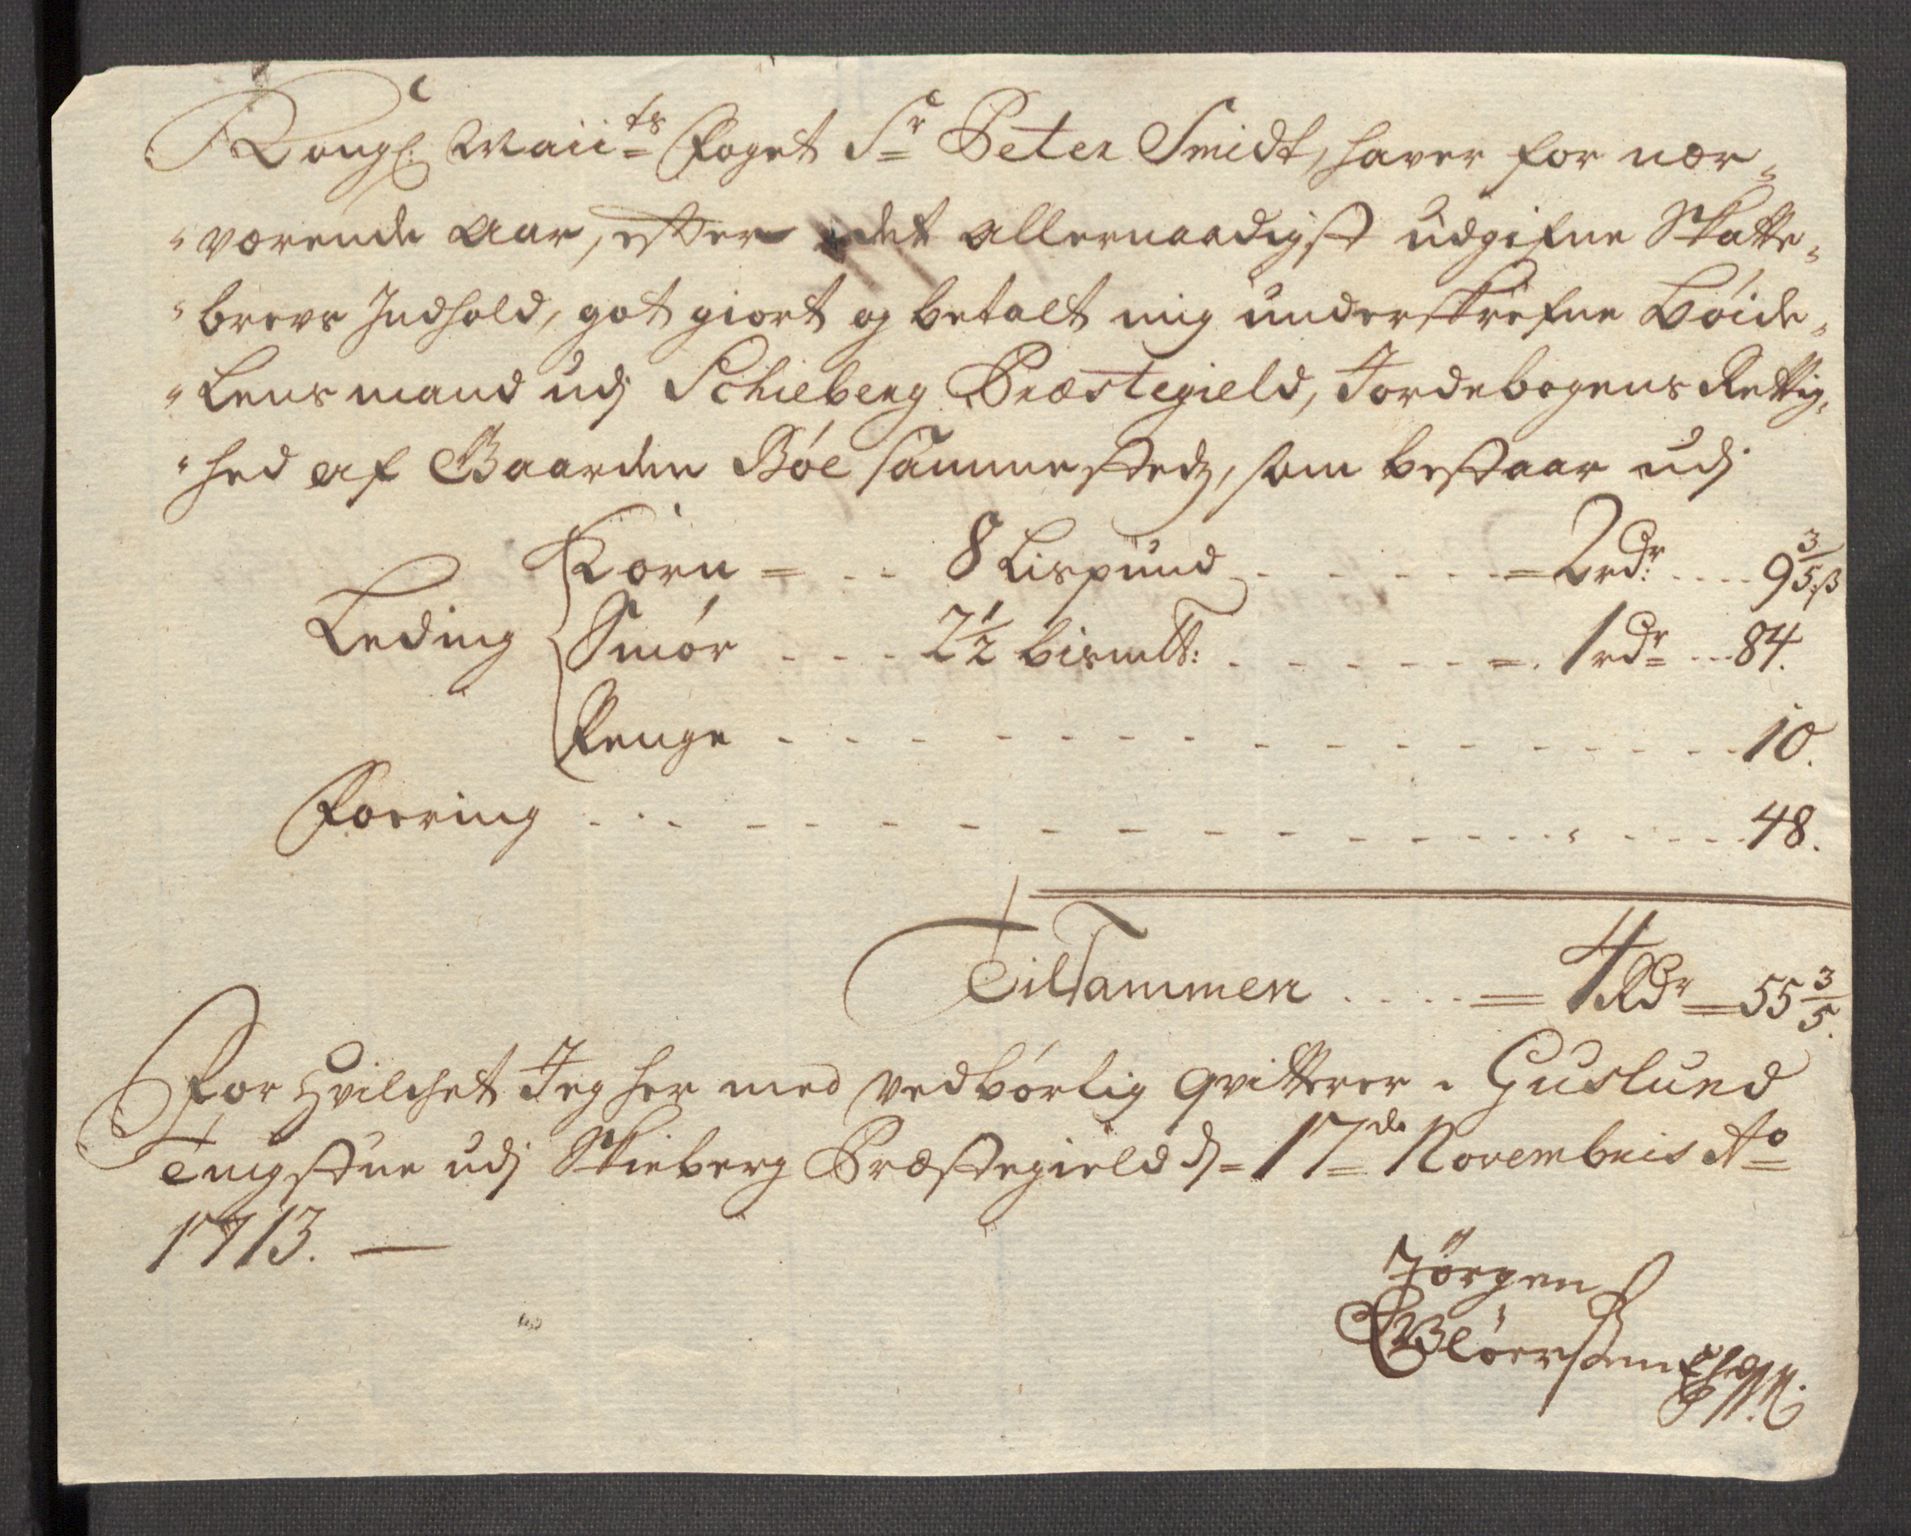 Kongl: Maiits Foget Sr Peter Smidt, haver for nær=
værende Aar, efter det allernaadigst udgifne Skatte=
brevs Indhold, got giort og betalt mig underskrefne Bøide=
Lensmand udj Schieberg Præstegield, Jordebogens Rettig=
hed af Gaarden Bøe sammestedz, som bestaar udj
Korn = . . 8 Lispund . . . . . = 2 rdr: .... 9 3/5 ß
Leding Smør . . . . 2 1/2 bism℔: . . . . . = . 1 rdr ... 84.
Penge . . . . . . . . . . . . . . 10.
Foering . . . . . . . . . . . . . . . . 48.
Tilsammen ..... = 4 Rdr = 55 3/5.
For hvilchet Jeg her med vedbørlig qvitterer. Guslund
Tingstue udj Skieberg Præstegield d= 17de Novembris Ao
1713. —
Jörgen